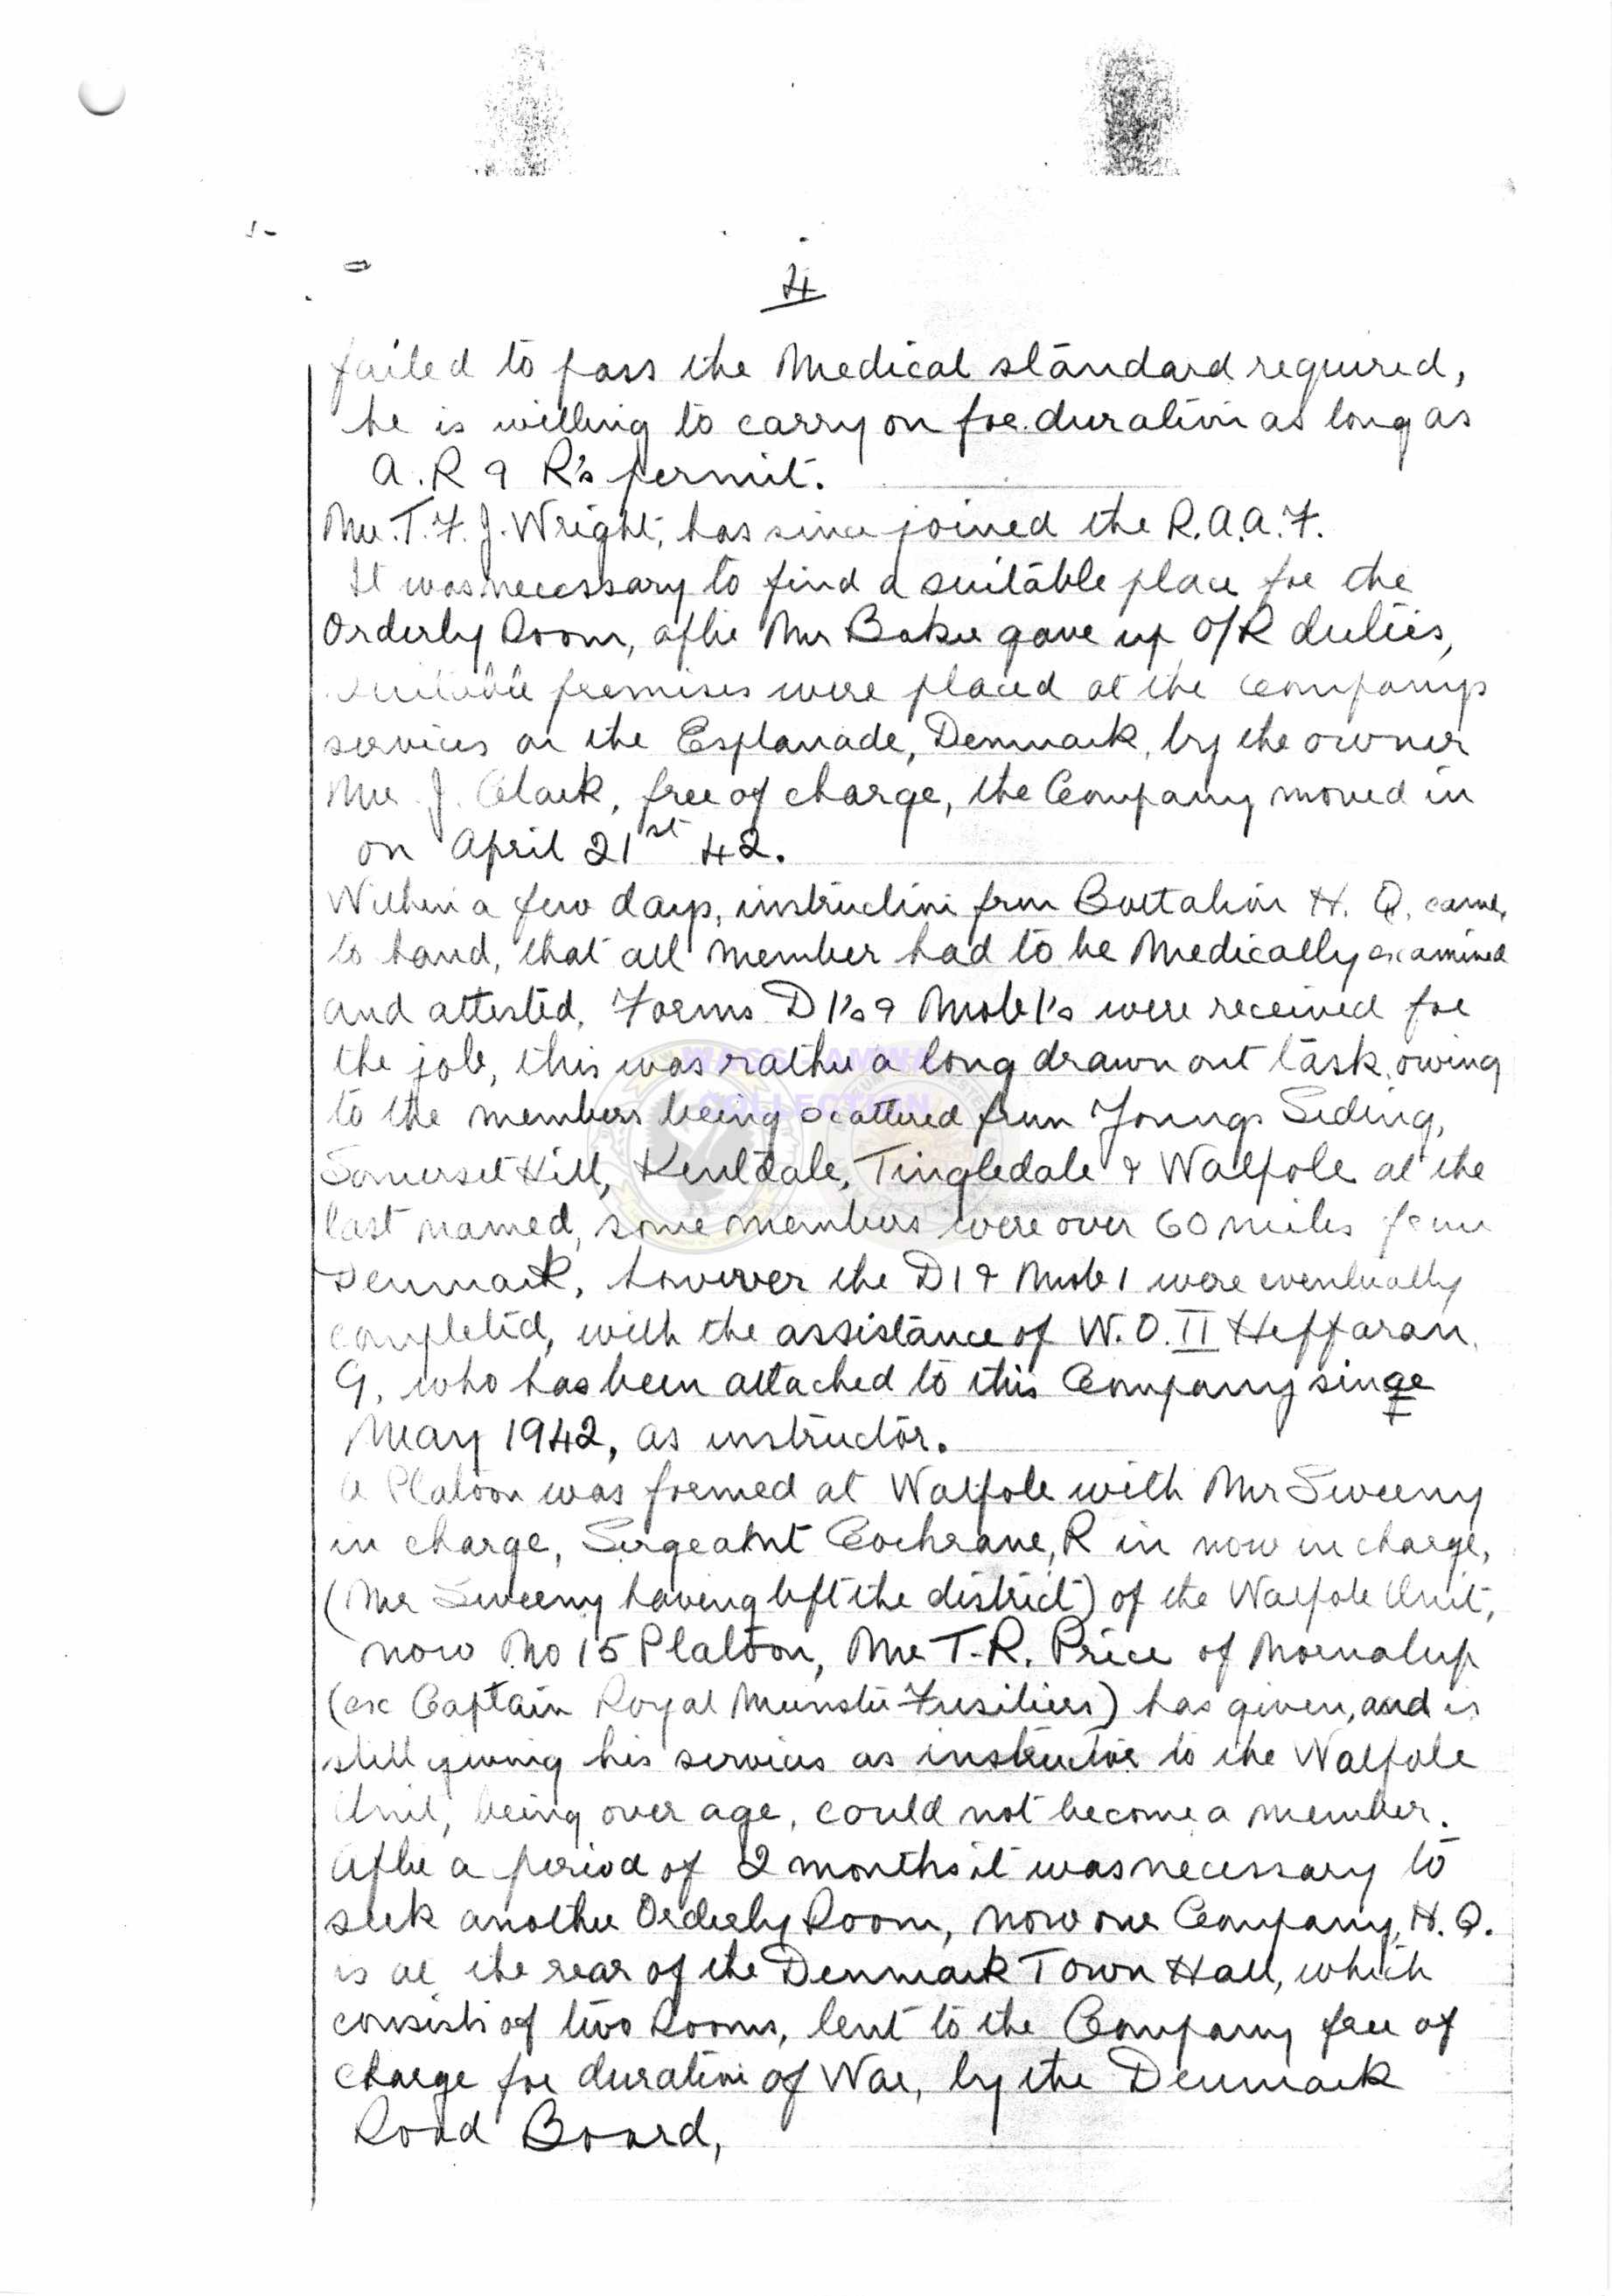 4
failed to pass the Medical standard required,
he is willing to carry on for duration as long as
A.R & R's permit.
Mr. T. F. J. Wright, has since joined the R.A.A.F.
It was necessary to find a suitable place for the
Orderly Room, after Mr Baker gave up O/R duties,
suitable premises were placed at the Companys
services on the Esplanade, Denmark, by the owner
Mr. J. Clark, free of charge, the Company moved in
on April 21st 42.
Within a few days, instruction from Battalion H. Q. came,
to hand, that all member had to be Medically examined
and attested, Forms D1's & Mob1's were received for
the job, this was rather a long drawn out task, owing
WASS - AMWA
COLLECTION
to the members being scattered from Youngs Siding,
Somerset Hill, Kentdale, Tingledale & Walpole at the
last named, some members were over 60 miles from
Denmark, however the D1 & Mob 1 were eventually
completed, with the assistance of W.O. II Heffaran,
G, who has been attached to this Company since
May 1942, as instructor.
A Platoon was formed at Walpole with Mr Sweeny
in charge, Sergeant Cochrane, R in now in charge,
(Mr Sweeny having left the district) of the Walpole Unit,
now No 15 Platoon, Mr T.R. Price of Nornalup
(ex Captain Royal Munster Fusiliers) has given, and is
still giving his services as instructor to the Walpole
Unit, being over age, could not become a member.
After a period of 2 months it was necessary to
seek another Orderly Room, now our Company, H. Q.
is at the rear of the Denmark Town Hall, which
consists of two Rooms, lent to the Company free of
charge for duration of War, by the Denmark
Road Board,